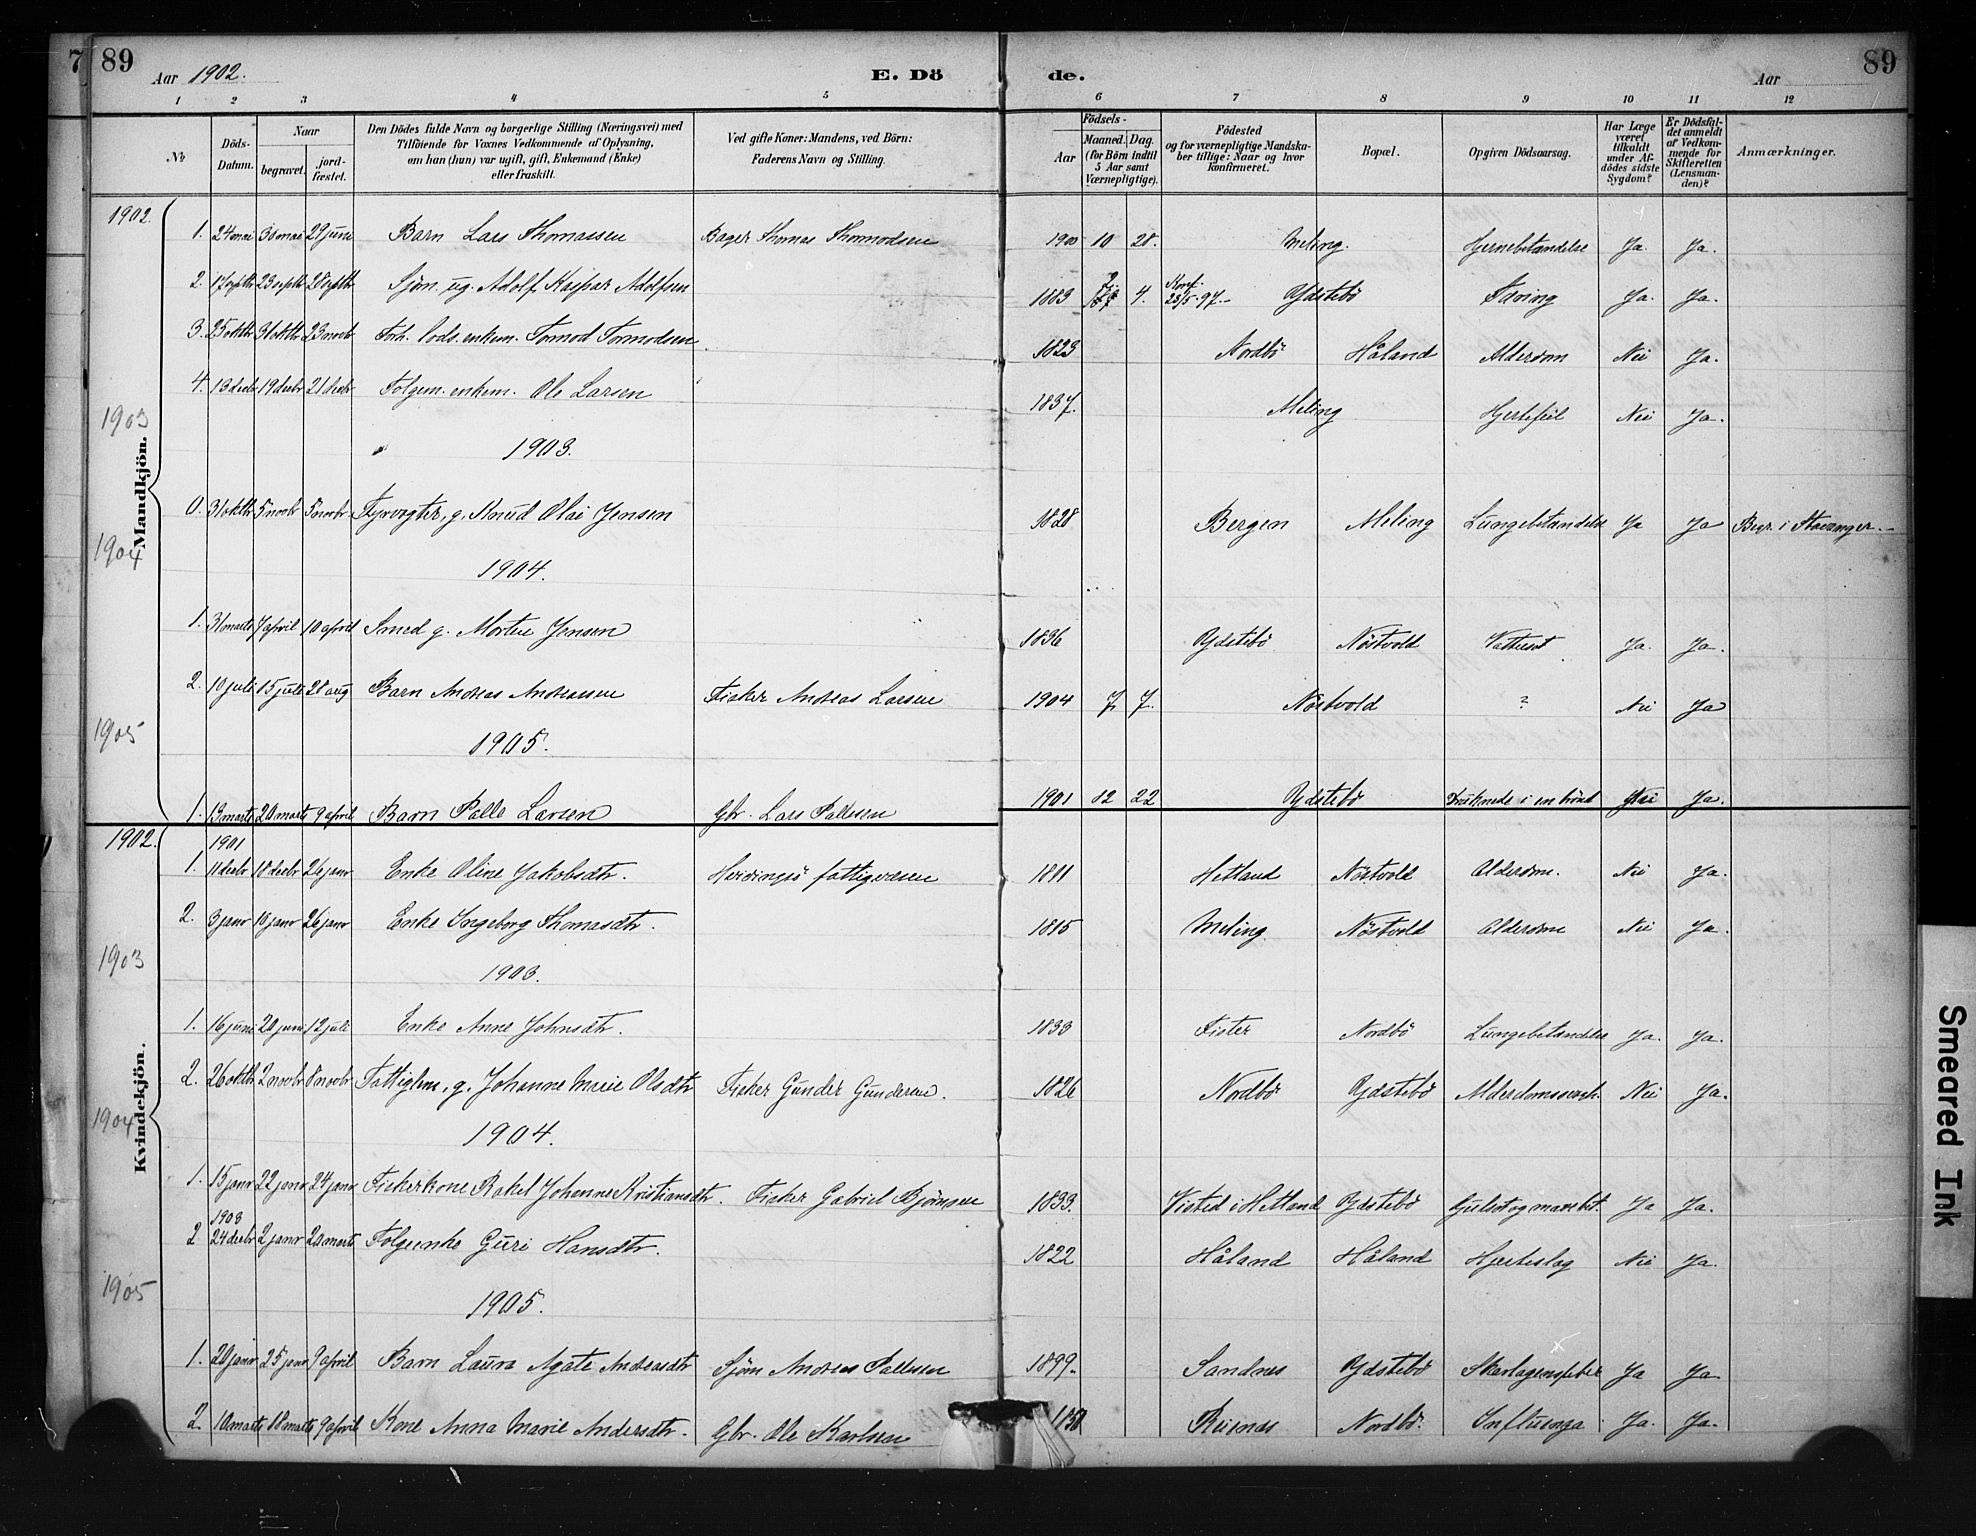 7 89
Aar 1902.
E. Dö
de.
Aar
89
1 2 3 4 5 6 7 8 9 10 11 12
No
Döds-Datum.
Naar
begravet.
jord-fæstet.
Den Dödes fulde Navn og borgerlige Stilling (Næringsvei) med
Tilföiende for Voxnes Vedkommende af Oplysning,
om han (hun) var ugift, gift, Enkemand (Enke)
eller fraskilt.
Ved gifte Koner: Mandens, ved Börn:
Faderens Navn og Stilling.
Födsels-
Aar
Maaned. Dag.
(for Börn indtil
5 Aar samt
Værnepligtige).
Födested
og for værnepligtige Mandska-
ber tillige: Naar og hvor
konfirmeret.
Bopæl.
Opgiven Dödsaarsag.
Har Læge
været
tilkaldt
under Af-
dödes sidste
Sygdom?
Er Dödsfal-
det anmeldt
af Vedkom-
mende for
Skifteretten
(Lensman-
den)?
Anmærkninger.
Mandkjön.
1902.
1. 24 mai 30 mai 29 juni Barn Lars Thomassen Bager Thomas Thormodsen 1900 10 28. Meling. Hjernebetændelse Ja. Ja.
2. 17 septbr 23 septbr 28 septbr Sjöm. ug. Adolf Kaspar Adolfsen 1883 4. Konf. 23/5-97.- Ydstebö Tæring Ja. Ja.
3. 25 oktbr 31 oktbr 23 novbr Forh. lods. enkem. Tormod Tormodsen 1823 Nordbö Håland Alderdom Nei Ja.
4. 13 decbr 19 decbr 21 decbr Folgem. enkem. Ole Larsen 1837. Meling Hjertefeil Nei Ja.
1903
1903.
0. 31 oktbr 5 novbr 5 novbr Fyrvogter, g. Knud Olai Jensen 1828 Bergen Meling Lungebetændelse Ja Ja Begr. i Stavanger.
1904
1904.
1. 31 marts 7 april 10 april Smed g. Morten Jensen 1836 Ydstebö Nöstvold Vattersot Ja. Ja.
2. 10 juli 15 juli 28 aug Barn Andreas Andreassen Fisker Andreas Larsen 1904 7. 7. Nöstvold ? Nei Ja
1905
1905.
1. 13 marts 20 marts 9 april Barn Palle Larsen Gbr. Lars Pallesen 1901 12 22 Ydstebö Druknede i en brönd Nei Ja.
Kvindekjön.
1902.
1901
1. 11 decbr 18 decbr 26 janr Enke Oline Jakobsdtr. Hvidingsö fattigvæsen 1811 Hetland Nöstvold Alderdom. Nei Ja.
2. 3 janr 10 janr 26 janr Enke Ingeborg Thomasdtr. 1815 Meling Nöstvold Alderdom Nei Ja.
1903
1903.
1. 16 juni 20 juni 12 juli Enke Anne Johnsdtr. 1833 Fister Nordbö Lungebetændelse Ja. Ja.
2. 26 oktbr 2 novbr 8 novbr Fattiglem, g. Johanne Marie Olsdtr Fisker Gunder Gundersen. 1826 Nordbö Ydstebö Alderdomssvagh. Nei Ja.
1904
1904.
1. 15 janr 22 janr 24 janr Fiskerkone Rakel Johanne Kristiansdtr. Fisker Gabriel Björnsen 1833. Visted i Hetland Ydstebö Gulsot og mavebet. Ja Ja.
1903
2 24 decbr 2 janr 20 marts Folgeenke Guri Hansdtr. 1822 Håland Håland Hjerteslag Nei Ja.
1905
1905.
1. 20 janr 25 janr 9 april Barn Laura Agate Andreasdtr Sjöm Andreas Pallesen 1899. Sandnes Ydstebö Skarlagensfeber Ja Ja
2. 10 marts 18 marts 9 april Kone Anna Marie Andersdtr. Gbr. Ole Karlsen Nordbö. Influenza Ja. Ja.
Smeared Ink